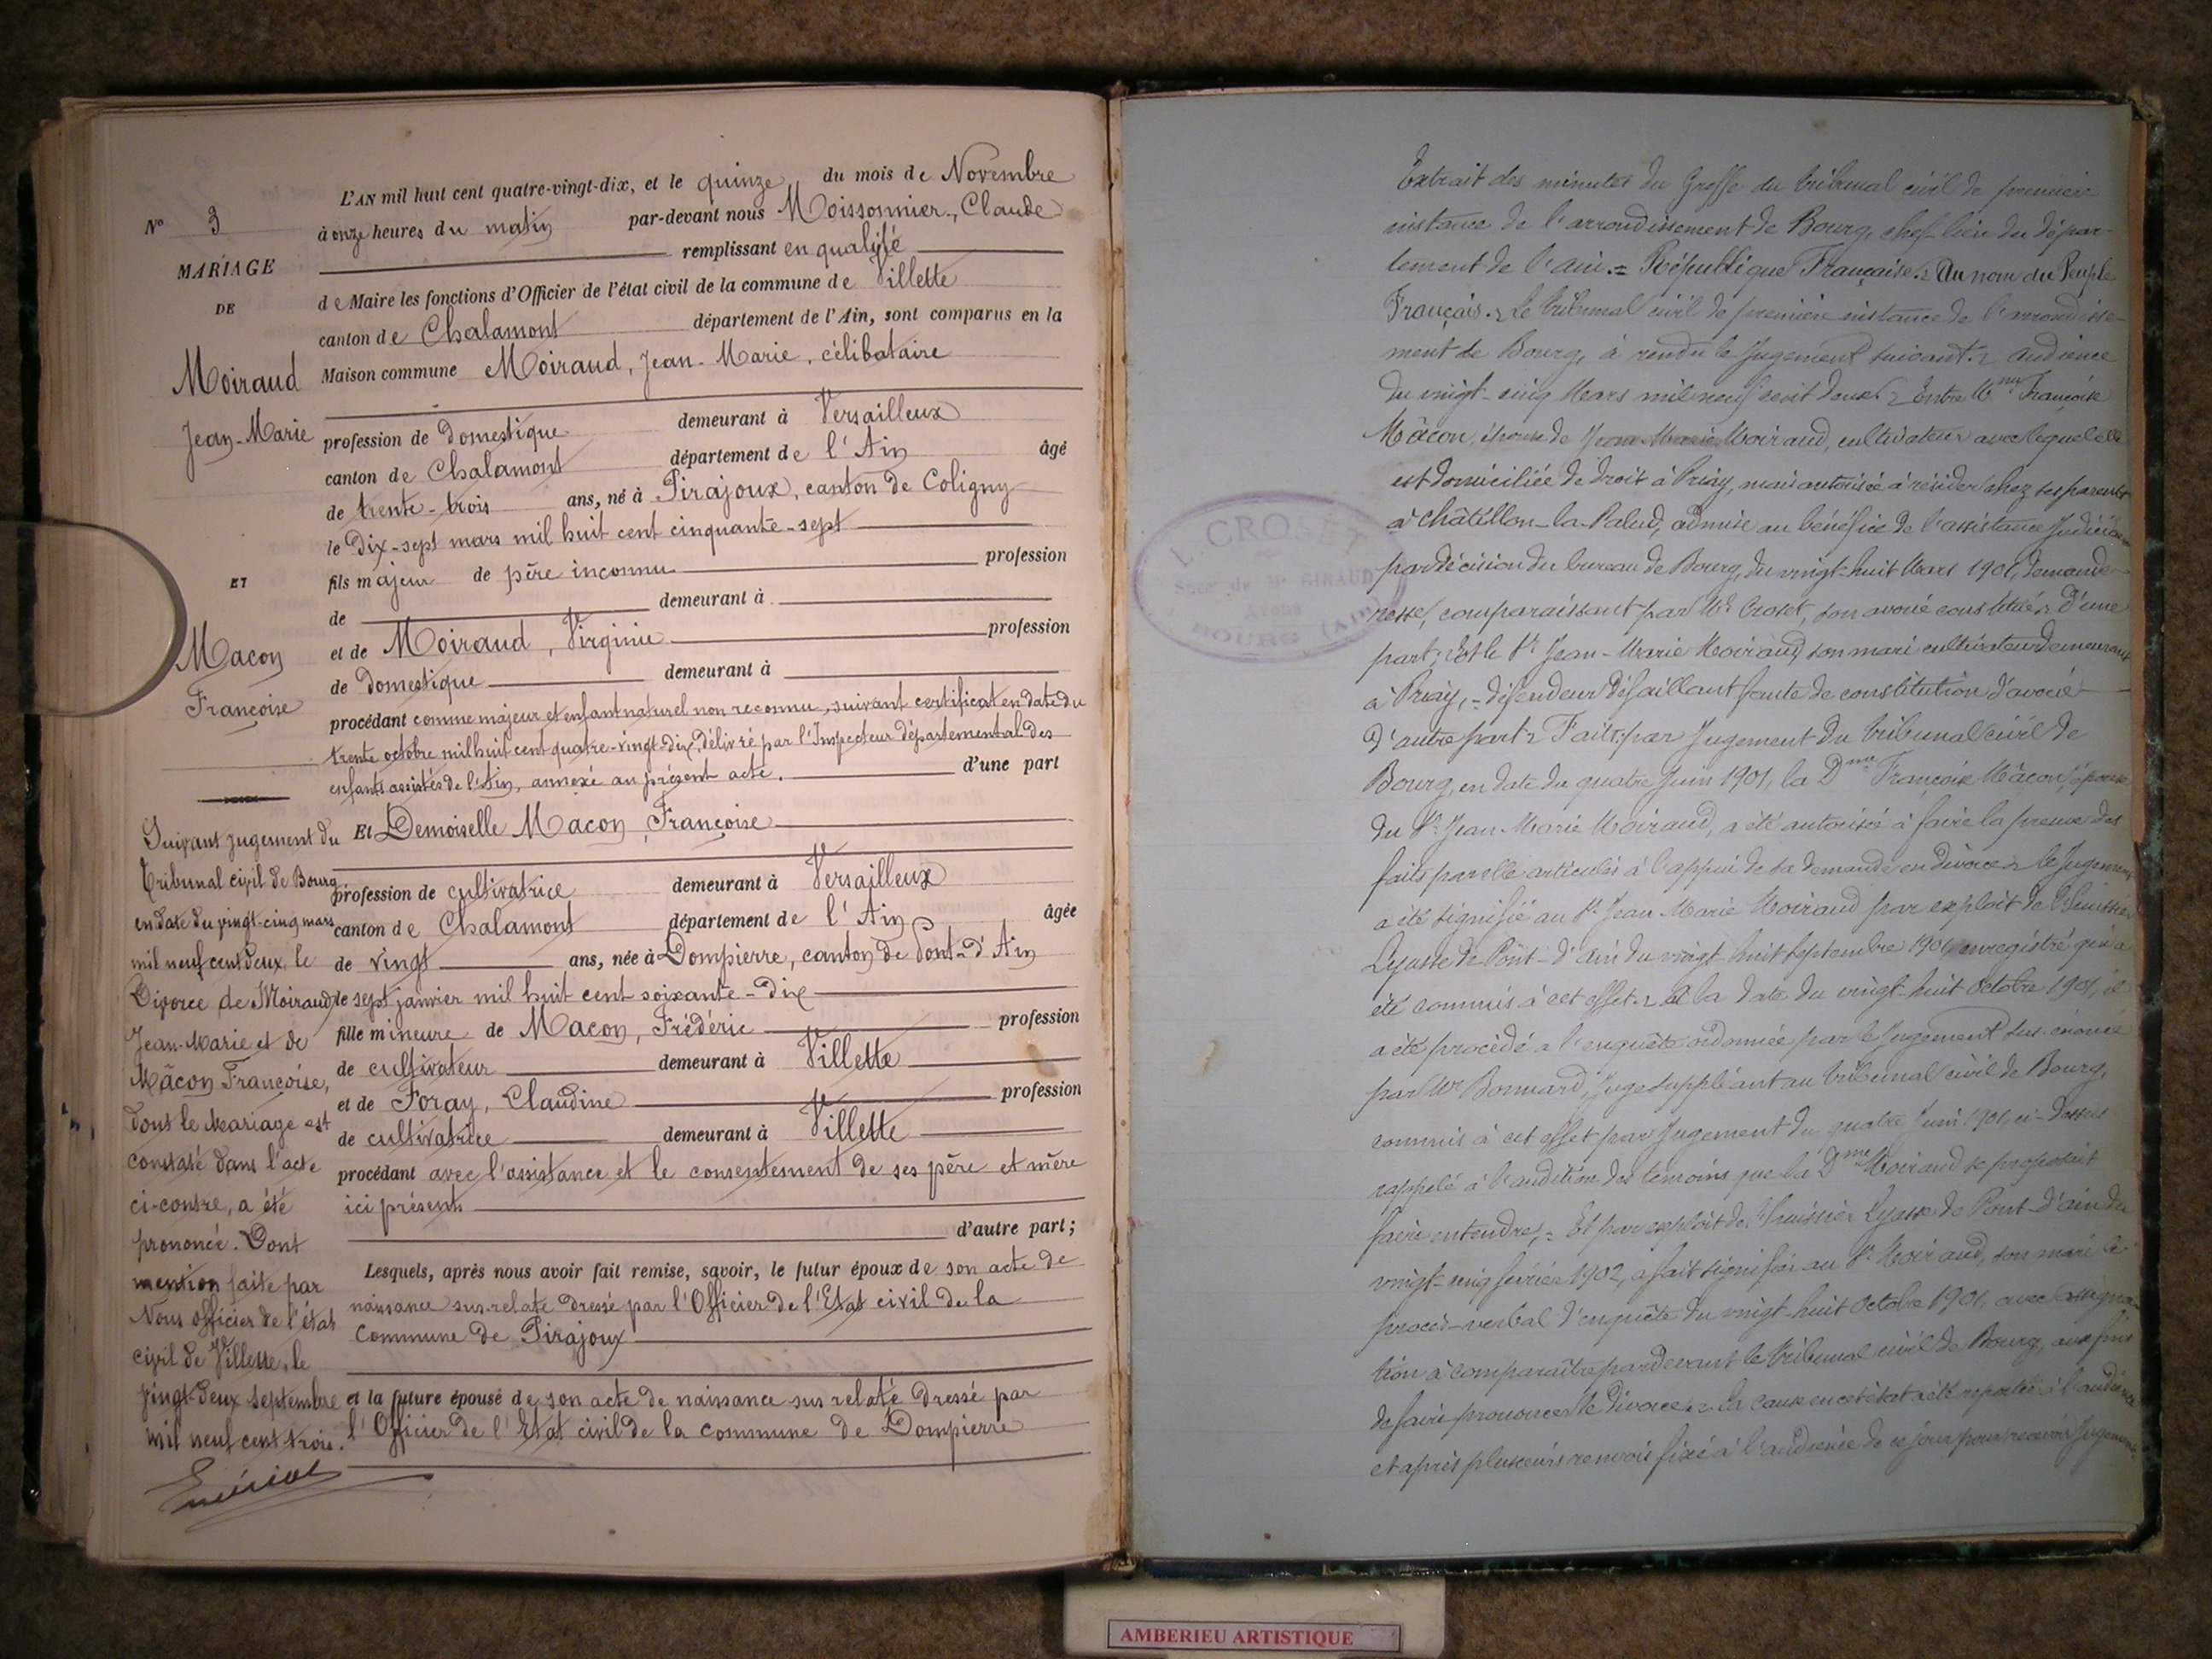 L'AN mil huit cent quatre-vingt-dix, et le quinze du mois de Novembre
à onze heures du matin par-devant nous Moissonnier, Claude
remplissant en qualité
de Maire les fonctions d'Officier de l'état civil de la commune de Villette
canton de Chalamont département de l'Ain, sont comparus en la
Maison commune Moiraud, Jean-Marie, célibataire
profession de domestique demeurant à Versailleux
canton de Chalamont département de l'Ain âgé
de trente-trois ans, né à Pirajoux, canton de Coligny
le dix-sept mars mil huit cent cinquante-sept
fils majeur de père inconnu profession
de demeurant à
et de Moiraud, Virginie profession
de domestique demeurant à
procédant comme majeur et enfant naturel non reconnu, suivant certificat en date du
trente octobre mil huit cent quatre-vingt-dix, délivré par l'Inspecteur départemental des
enfants assistés de l'Ain, annexé au présent acte. d'une part
Et Demoiselle Macon, Françoise
profession de cultivatrice demeurant à Versailleux
canton de Chalamont département de l'Ain âgée
de vingt ans, née à Dompierre, canton de Pont-d'Ain
le sept janvier mil huit cent soixante-dix
fille mineure de Macon, Frédéric profession
de cultivateur demeurant à Villette
et de Foray, Claudine profession
de cultivatrice demeurant à Villette
procédant avec l'assistance et le consentement de ses père et mère
ici présents
d'autre part;
Lesquels, après nous avoir fait remise, savoir, le futur époux de son acte de
naissance sus-relaté dressé par l'Officier de l'Etat civil de la
Commune de Pirajoux
et la future épouse de son acte de naissance sus relaté dressé par
l'Officier de l'Etat civil de la commune de Dompierre
N° 3
MARIAGE
DE
Moiraud
Jean-Marie
ET
Macon
Françoise
Suivant jugement du
Tribunal civil de Bourg
en date du vingt-cinq mars
mil neuf cent deux, le
Divorce de Moiraud
Jean-Marie et de
Mâcon Françoise,
dont le Mariage est
constaté dans l'acte
ci-contre, a été
prononcé. Dont
mention faite par
Nous officier de l'état
civil de Villette, le
vingt-deux septembre
mil neuf cent trois.
Extrait des minutes du Greffe du tribunal civil de première
instance de l'arrondissement de Bourg, chef-lieu du dépar-
tement de l'ain.= République Française.= Au nom du Peuple
Français.= Le tribunal civil de première instance de l'arrondisse-
ment de Bourg, à rendu le Jugement suivant.= Audience
du vingt-cinq Mars mil neuf cent deux.= Entre Françoise
Mâcon, épouse de Jean-Marie Moiraud, cultivateur avec lequel elle
est domiciliée de droit à Priay, mais autorisée à résider chez ses parents
à Châtillon-la-Palud, admise au bénéfice de l'assistance Judiciaire
par décision du bureau de Bourg, du vingt-huit Mars 1901, demande-
resse, comparaissant par Me Croset, son avoué constitué= d'une
part; Et le Sr Jean-Marie Moiraud, son mari cultivateur demeurant
à Priay,= défendeur défaillant faute de constitution d'avoué
d'autre part= Faits: par Jugement du tribunal civil de
Bourg, en date du quatre Juin 1901, la Dme Françoise Mâcon, épouse
du Sr Jean-Marie Moiraud, a été autorisée à faire la preuve des
faits par elle articulés à l'appui de sa demande en divorce= le Jugement
a été signifié au Sr Jean-Marie Moiraud par exploit de l'huissier
Lyasse de Pont-d'ain du vingt huit Septembre 1901, enregistré qui a
été commis à cet effet.= à la date du vingt-huit Octobre 1901, il
a été procédé à l'enquête ordonnée par le Jugement sus-énoncé
par Mr Bonnard, Juge suppléant au tribunal civil de Bourg,
commis à cet effet par Jugement du quatre Juin 1901, ci-dessus
rappelé à l'audition des témoins que la Dme Moiraud se proposait
faire entendre,= Et par exploit de l'huissier Lyasse de Pont-d'ain du
vingt-cinq février 1902, a fait signifier au Sr Moiraud, son mari le
procès-verbal d'enquête du vingt-huit Octobre 1901, avec assigna-
tion à comparaître pardevant le tribunal civil de Bourg, aux fins
de faire prononcer le divorce.= La cause en cet état a été reportée à l'audience
et après plusieurs renvois fixé à l'audience de ce jour pour recevoir Jugement.
L. CROSET
Succr de Me GIRAUD
Avoué
BOURG (AIN)
AMBERIEU ARTISTIQUE